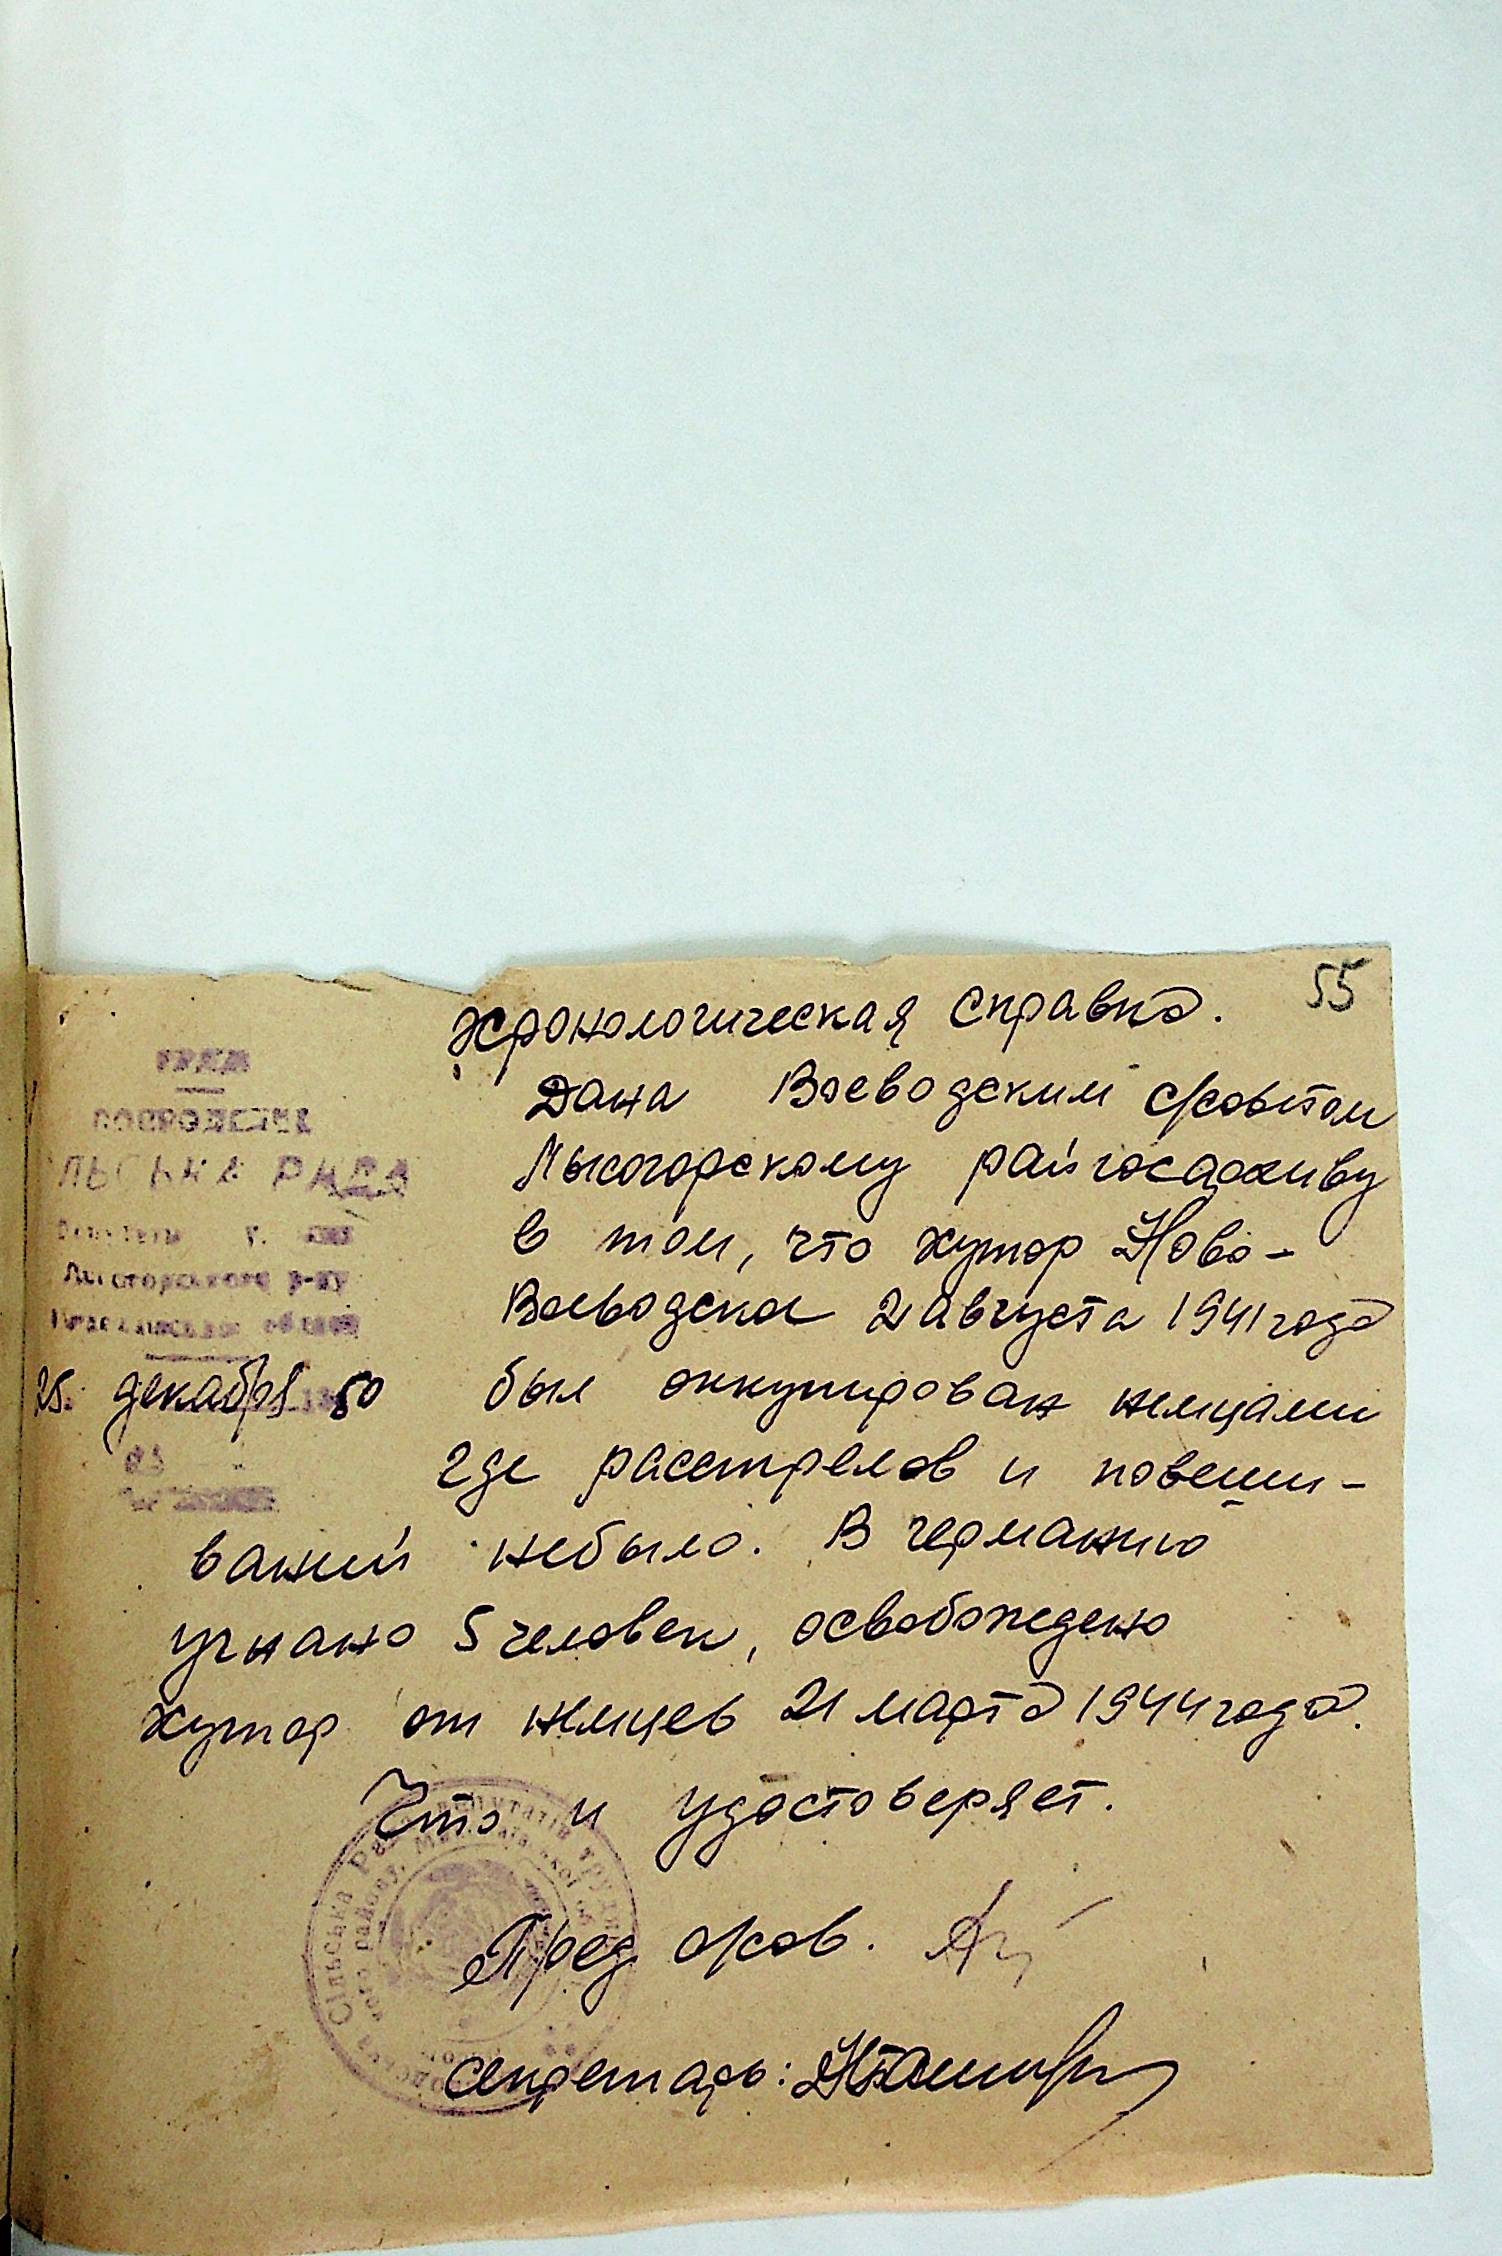 55
Хронологическая справка.
Дана Воеводским с/советом
Лысогорскому райгосархиву
в том, что хутор Ново-
Воеводска 21 августа 1941 года
был оккупирован немцами
где расстрелов и повеши-
ваний небыло. В германию
угнано 5 человек, освобождено
хутор от немцев 21 марта 1944 года.
Что и удостоверяет.
Пред с/сов.
секретарь:
УРСР
ВОЕВОДСЬКА
СІЛЬСЬКА РАДА
Лисогорського р-ну
області
25. декабря 50
Сільська Рада депутатів
району, Миколаївської